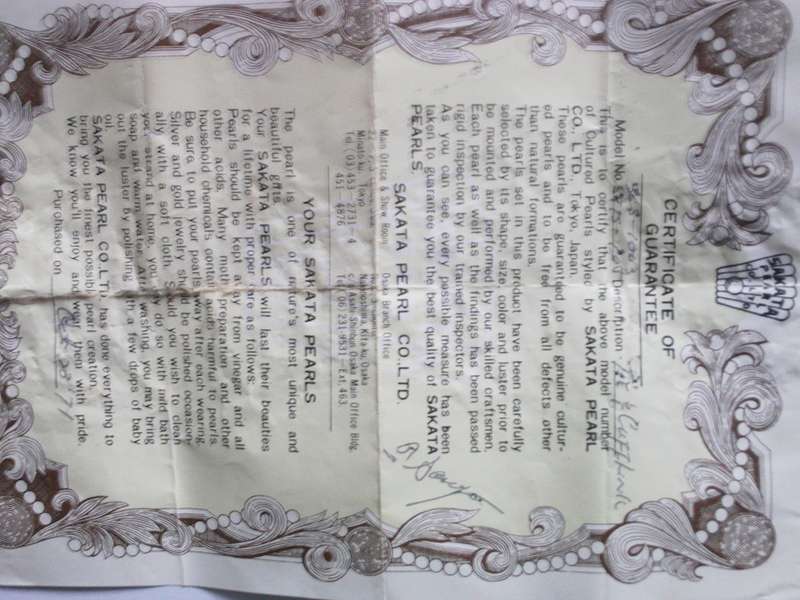 SAKATA
PEARL
CO. LTD.
CERTIFICATE OF
GUARANTEE
Model No. Description
This is to certify that the above model number
of Cultured Pearls styled by SAKATA PEARL
CO., LTD. Tokyo Japan.
These pearls are guaranteed to be genuine cultur-
ed pearls and to be free from all defects other
than natural formations.
The pearls set in this product have been carefully
selected by its shape, size, color and luster prior to
be mounted and performed by our skilled craftsmen.
Each pearl as well as the findings has been passed
rigid inspection by our trained inspectors.
As you can see, every passible measure has been
taken to guarantee you the best quality of SAKATA
PEARLS
SAKATA PEARL CO., LTD.
Main Office & Show Room
Minato-ku, Tokyo
Tel. 03) 453 2731-4
451 4876
Osaka Branch Office
Nakanoshima Kita-ku, Osaka
c/o Asahi Shinbun Osaka Main Office Bldg.
Tel. 06) 231-9531-Ext. 463.
YOUR SAKATA PEARLS
The pearl is one of nature's most unique and
beautiful gifts.
Your SAKATA PEARLS will last their beauties
for a lifetime with proper care as follows:
Pearls should be kept away from vinegar and all
other acids. Many moth preparation and other
household chemicals contain acids harmful to pearls.
Be sure to put your pearls after each wearing.
Silver and gold jewelry should be polished occasion-
ally with a soft cloth. Should you wish to clean
your strand at home, you may do so with mild bath
soap and warm water. After washing, you may bring
out the luster by polishing with a few drops of baby
oil.
SAKATA PEARL CO., LTD. has done everything to
bring you the finest possible pearl creation.
We know you'll enjoy and wear them with pride.
Purchased on